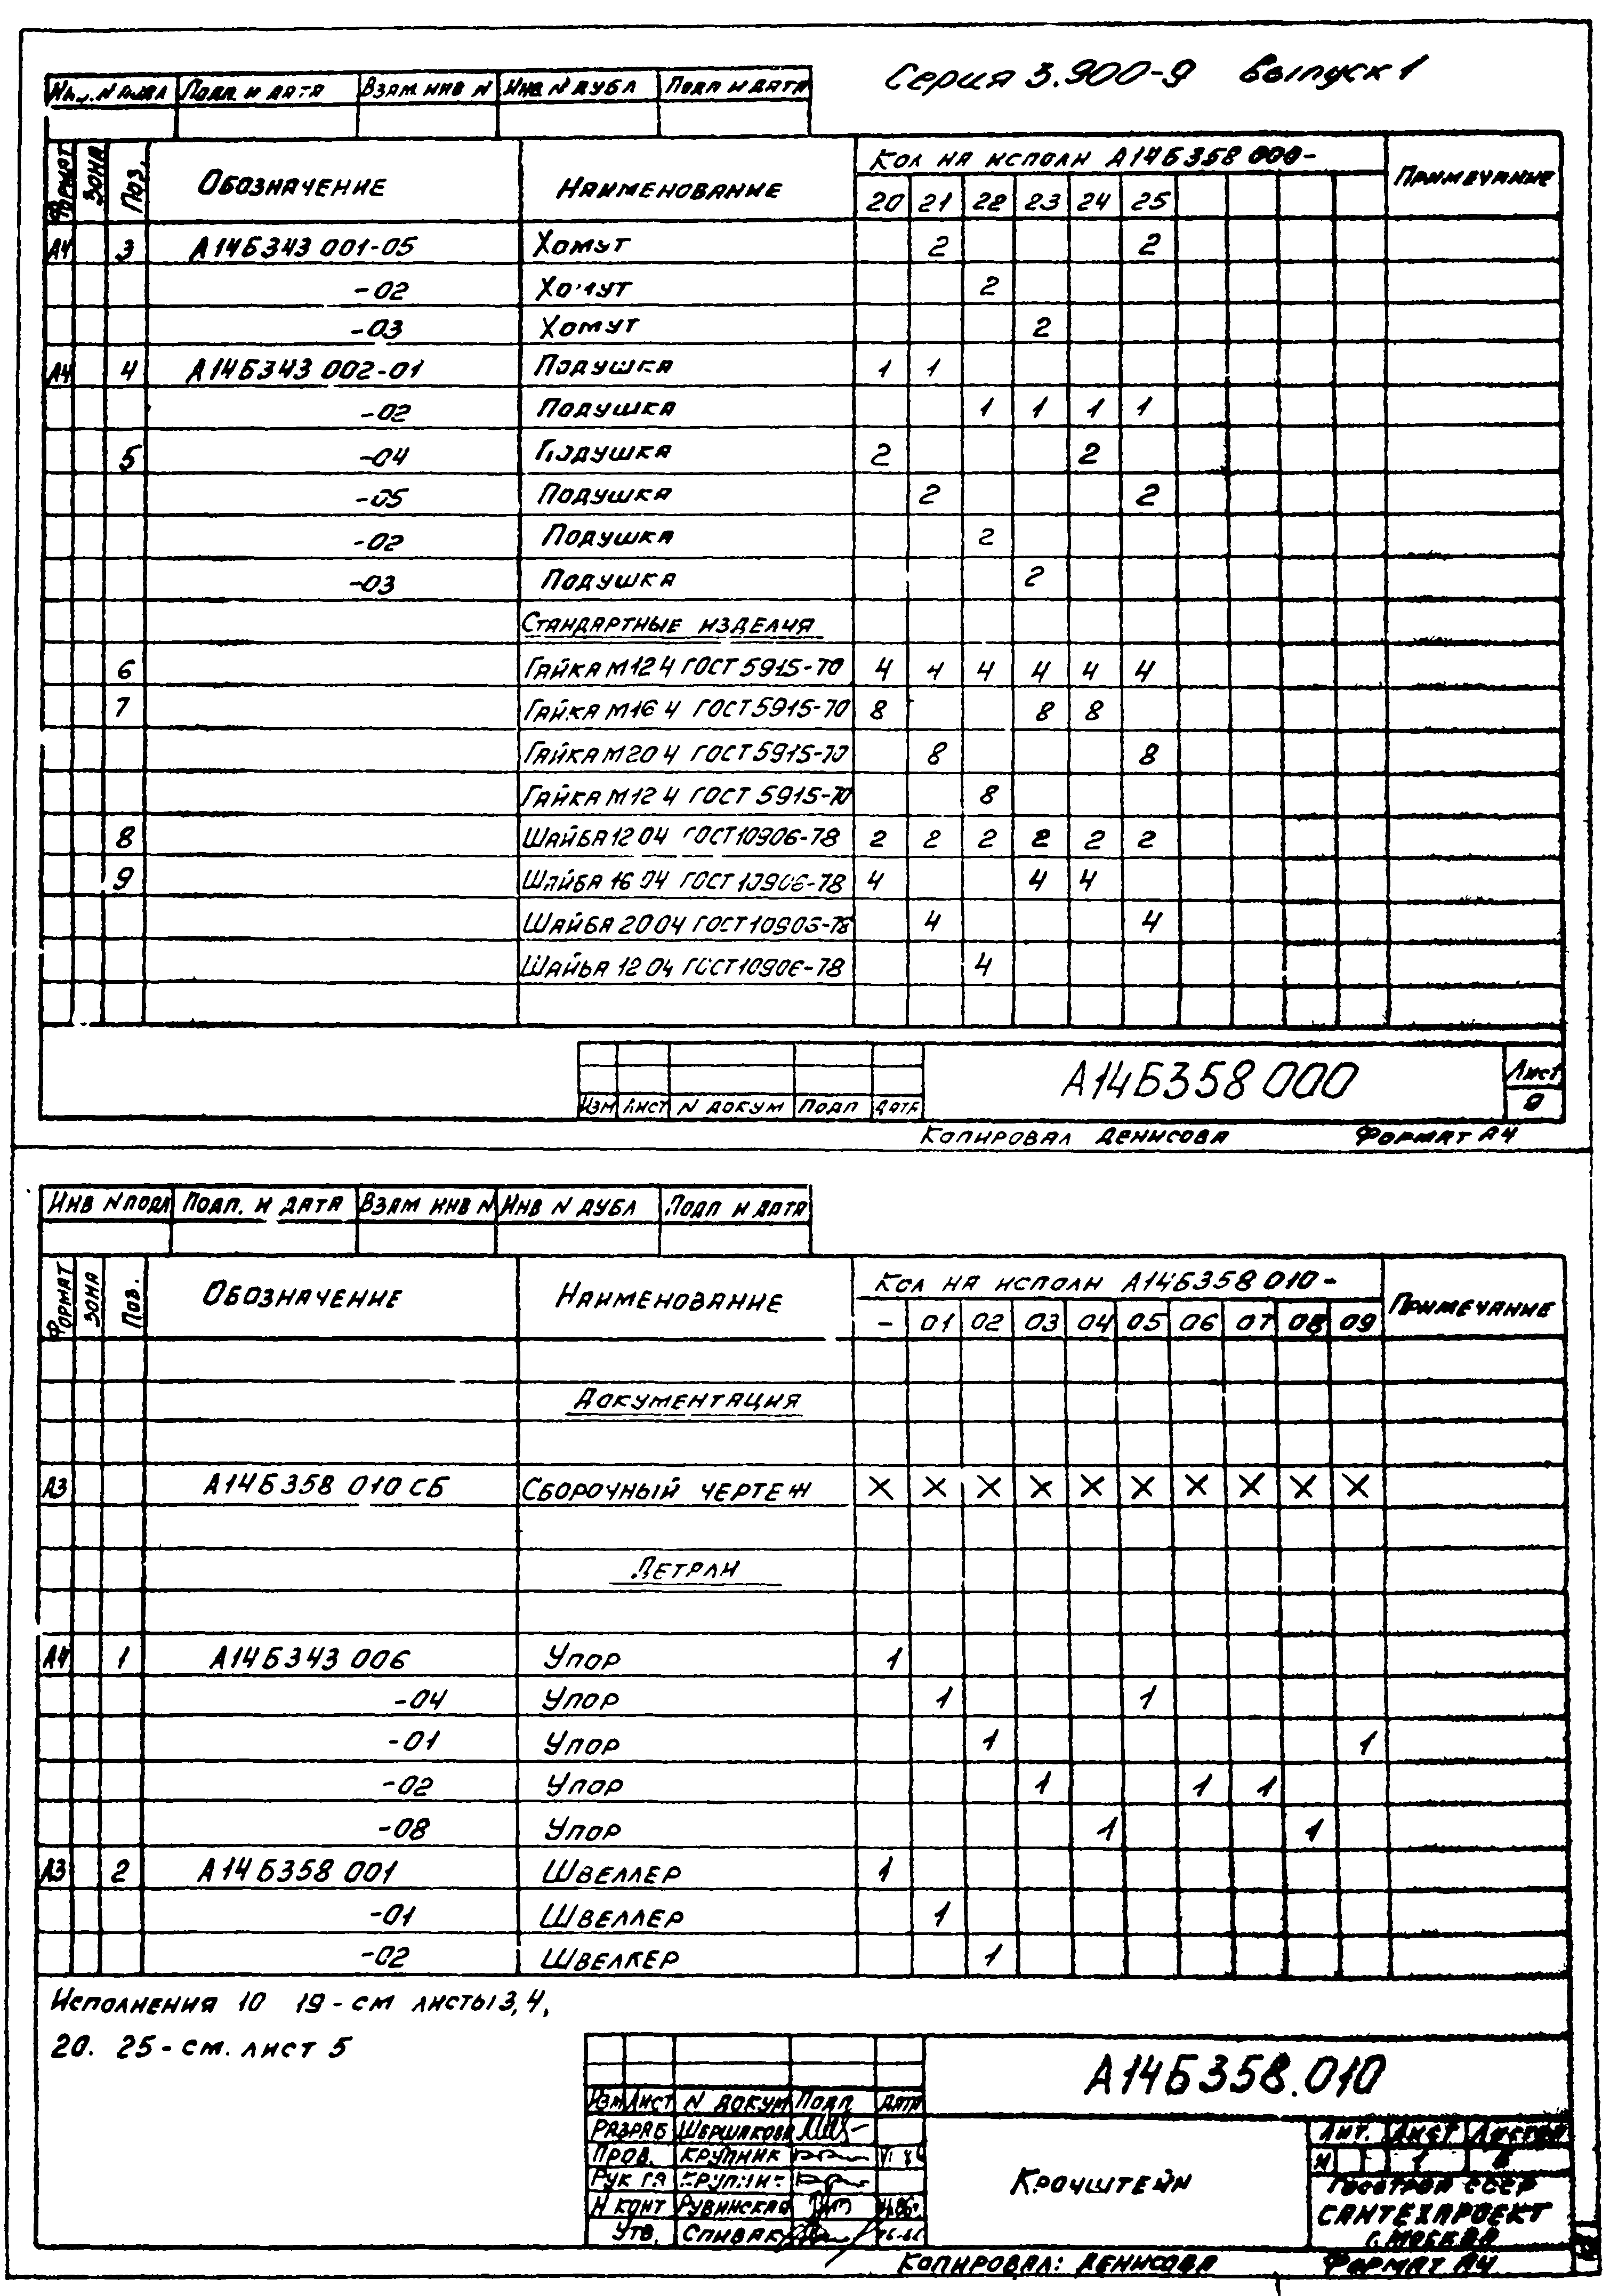 Серия 3.900-9 Выпуск 1
Инв. N подл Подп. и дата Взам инв N Инв N дубл Подп и дата
Формат Зона Поз. Обозначение Наименование Кол на исполн А14Б358 000- Примечание
20 21 22 23 24 25
А4 3 А14Б343 001-05 Хомут 2 2
-02 Хомут 2
-03 Хомут 2
А4 4 А14Б343 002-01 Подушка 1 1
-02 Подушка 1 1 1 1
5 -04 Подушка 2 2
-05 Подушка 2 2
-02 Подушка 2
-03 Подушка 2
Стандартные изделия
6 Гайка М12 4 ГОСТ 5915-70 4 4 4 4 4 4
7 Гайка М16 4 ГОСТ 5915-70 8 8 8
Гайка М20 4 ГОСТ 5915-70 8 8
Гайка М12 4 ГОСТ 5915-70 8
8 Шайба 12 04 ГОСТ 10906-78 2 2 2 2 2 2
9 Шайба 16 04 ГОСТ 10906-78 4 4 4
Шайба 20 04 ГОСТ 10906-78 4 4
Шайба 12 04 ГОСТ 10906-78 4
А14Б358 000 Лист
Изм Лист N докум Подп Дата
Копировал Денисова Формат А4
Инв N подл Подп. и дата Взам инв N Инв N дубл Подп и дата
Формат Зона Поз. Обозначение Наименование Кол на исполн А14Б358 010- Примечание
- 01 02 03 04 05 06 07 08 09
Документация
А3 А14Б358 010 СБ Сборочный чертеж X X X X X X X X X X
Детали
А4 1 А14Б343 006 Упор 1
-04 Упор 1 1
-01 Упор 1 1
-02 Упор 1 1 1
-08 Упор 1 1
А3 2 А14Б358 001 Швеллер 1
-01 Швеллер 1
-02 Швеллер 1
Исполнения 10 19 - см листы 3, 4,
20. 25 - см. лист 5
А14Б358.010
Изм Лист N докум Подп Дата
Разраб Шершакова
Пров. Крупник
Рук гр Крупник
Н конт Рувинская
Утв. Спивак
Кронштейн
Лит. Лист Листов
И 1
Госстрой СССР
Сантехпроект
г. Москва
Копировал: Денисова Формат А4